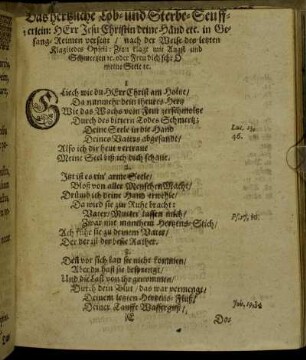 Das hertzliche Lob- und Sterbe-Seuff-
tzerlein: HErr Jesu Christ in deine Händ etc. in Ge-
sang-Reimen versetzt / nach der Weise des letzten
Klagliedes Opitii: Zion klagt mit Angst und
Schmertzen ꝛc. oder Freu dich sehr O
meine Seele ꝛc.
1.
GLeich wie du HErr Christ am Holtze /
Da nunmehr dein theures Hertz
Wie das Wachs vom Feur zerschmoltze
Durch des bittern Todes Schmertz /
Deine Seele in die Hand
Deines Vaters abgesandt /
Also ich die heut vertraue
Meine Seel biß ich dich schaue.
Luc. 23.
46.
2.
Itzt ist es ein' arme Seele /
Bloß von aller Menschen Macht /
Drumb ich deine Hand erwöhle /
Da wird sie zur Ruhe bracht:
Vater / Mutter lassen mich /
Zwar mit manchem Hertzens-Stich /
Ps. 27, 10.
Ach führ sie zu deinem Vater /
Der der
3.
Daß vor sich kan sie nicht kommen /
Aber du hast sie besprengt /
Und die Last von ihr genommen /
Durch dein Blut / das war vermengt /
Deinem letzten Hertzens-Fluß /
Deiner Tauffe Wasserguß /
Joh. 19. 34
Das